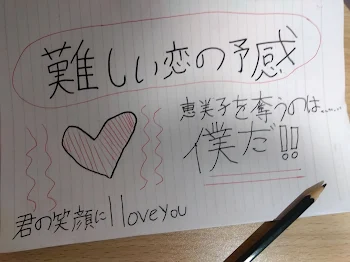 難しい恋の予感
恵美子を奪うのは……
僕だ!!
君の笑顔に I love you